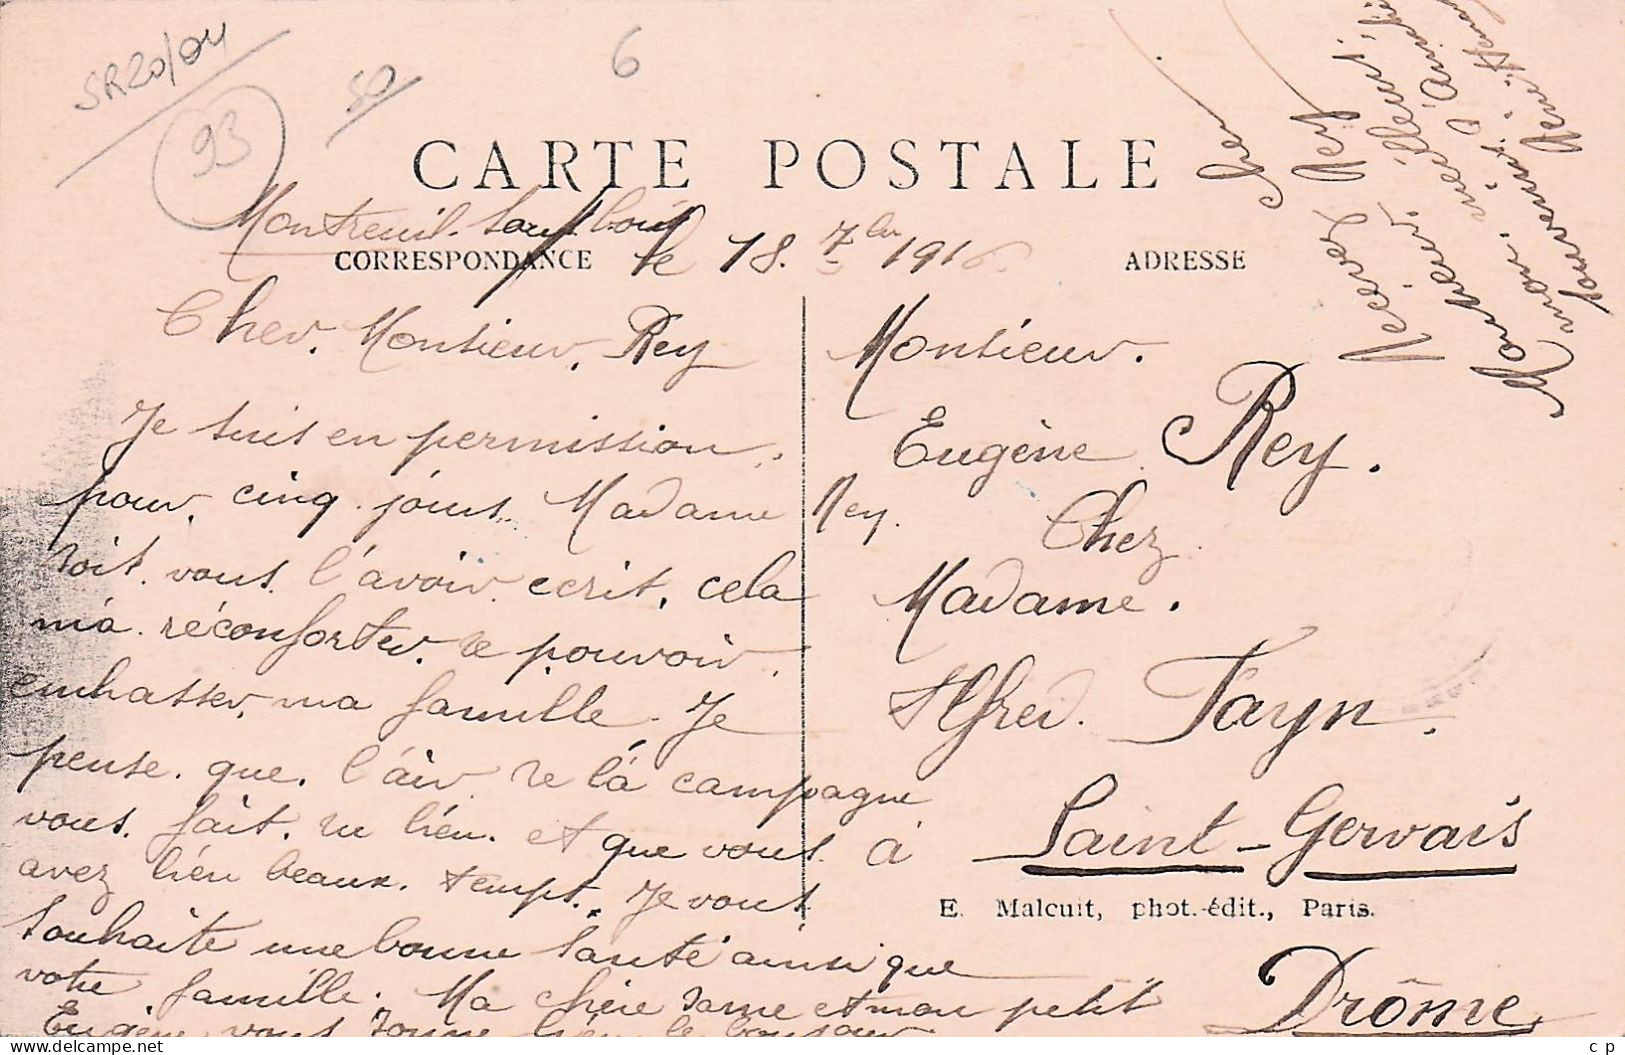 SR20/04
93
50
6
CARTE POSTALE
Montreuil. Sous. bois
CORRESPONDANCE
le 18. 7bre 1916.
ADRESSE
Cher. Monsieur. Rey
Je suis en permission.
pour. cinq. jours. Madame Rey.
doit. vous. l'avoir. ecrit. cela
m'á. réconforter. de pouvoir.
embrasser. ma famille. Je
pense. que. l'áir de lá campagne
vous. fait. du bien. et que vous
avez bien beaux. temps. Je vous
souhaite une bonne santé ainsi que
votre famille. Ma chère dame et mon petit
Eugène vous donne bien le bonjour
Monsieur.
Eugène Rey.
Chez
Madame.
Alfred. Tayn.
à Saint-Gervais
E. Malcuit, phot.-édit., Paris.
Drôme
Cher
Rey
Recevez
meilleurs